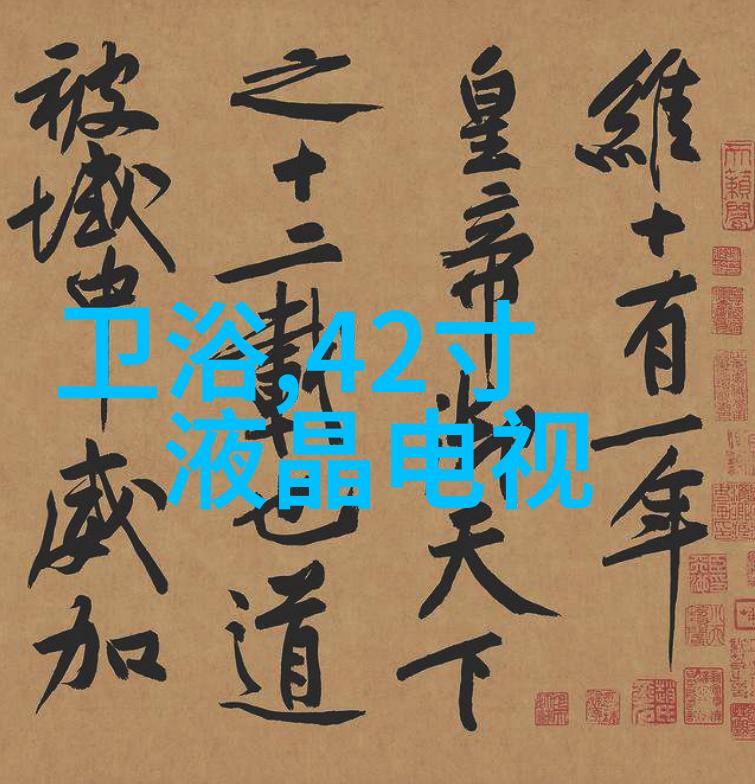 維十有一年
皇帝御天下
之十二載也道
被域中威加
卫浴,42寸
液晶电视